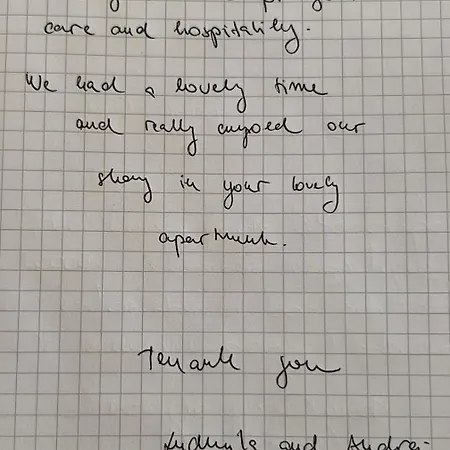 care and hospitality.
We had a lovely time
and really enjoyed our
stay in your lovely
apartment.
Thank you
and